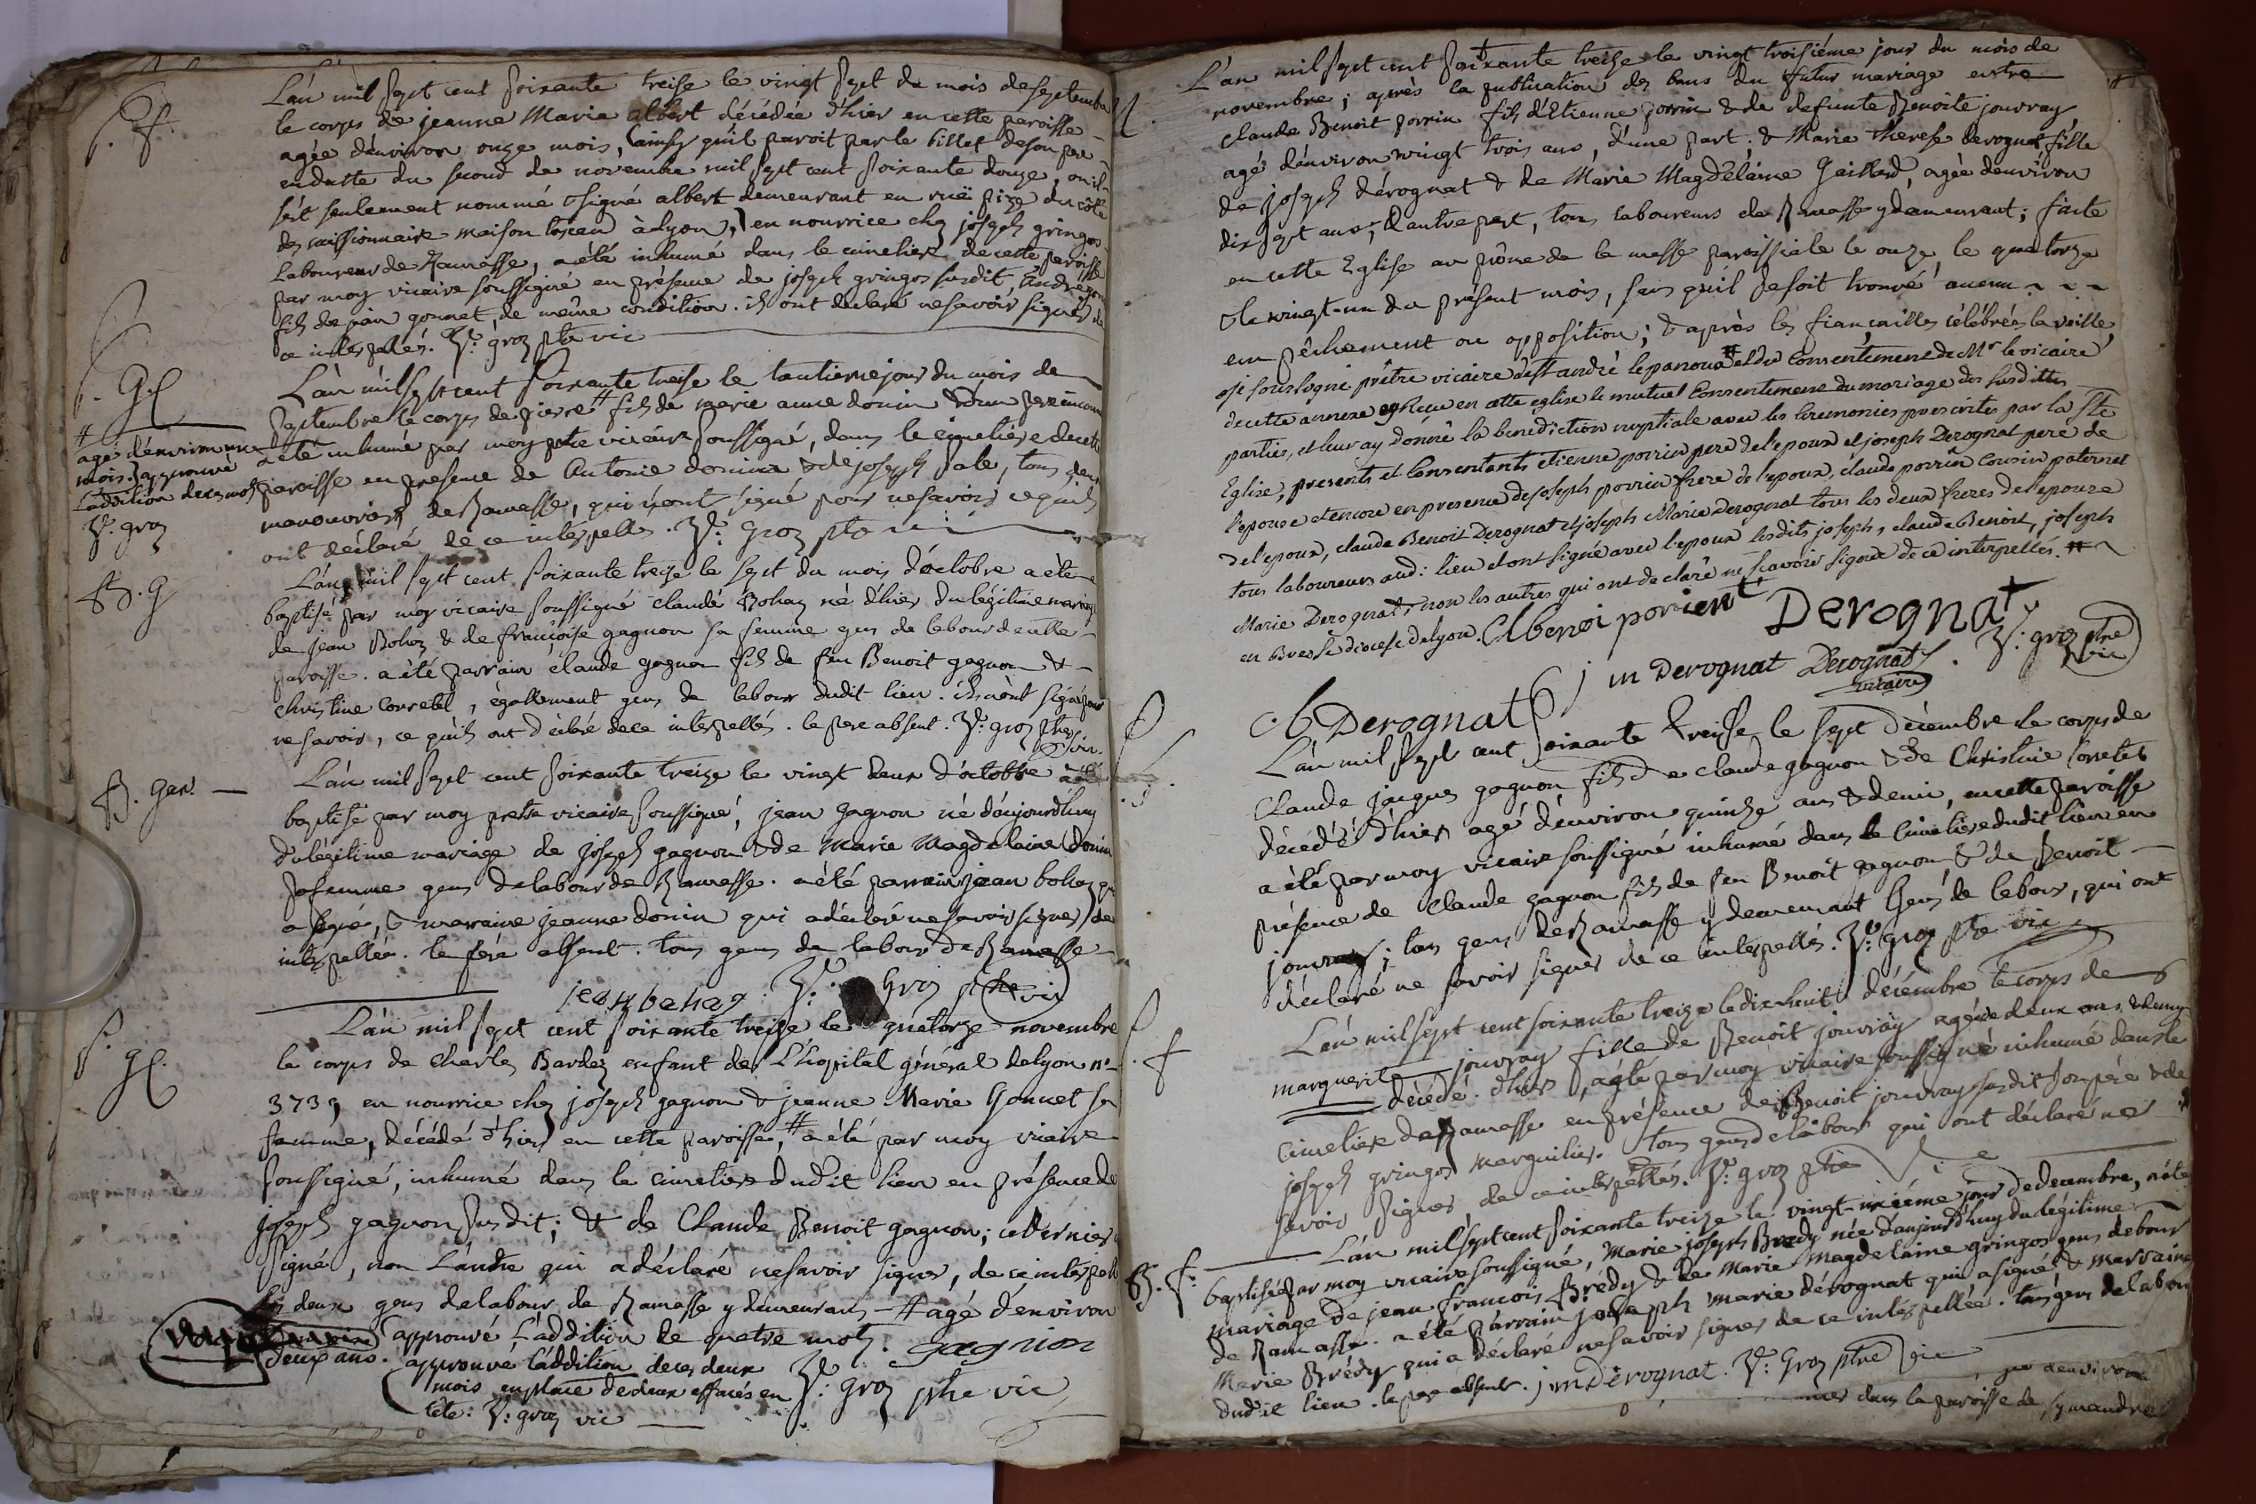 L'an mil sept cent soixante treise le vingt sept du mois de septembre
le corps de jeanne Marie albert décédée d'hier en cette paroisse
agée d'environ onze mois, ainsy qu'il paroit par le billet de son
en datte du second de novembre mil sept cent soixante douze, ou il
s'ét seulement nommé & signé albert demeurant en ruë pize du côté
des missionnaire maison à Lyon, en nourrice chez joseph gringos
Laboureur de Ramasse, a été inhumé dans le cimetiere de cette paroisse
par moy vicaire soussigné en présence de joseph gringos susdit, &
fils de gonnet de même condition. ils ont declaré ne savoir signer de
ce interpelés. V: groz ptre vic
P. f.
L'an mil sept cent soixante treise le jour du mois de
septembre le corps de pierre # fils de marie anne donin & d'un pere inconnu
a été inhumé par moy ptre vicaire soussigné, dans le cimetiére de cette
paroisse en presence de Antoine donin & de joseph pale, tous deux
manouvriers de Ramasse, qui n'ont signé pour ne savoir ce qu'ils
ont déclaré de ce interpellés. V: groz ptre vic
P. G
# agé d'environ
mois. j'approuve
l'addition de ces mots
V: groz
B. G
L'an mil sept cent soixante treize le sept du mois d'octobre a été
baptisé par moy vicaire soussigné claude Bohaz né d'hier du légitime mariage
de jean Bohaz & de françoise gagnon sa femme gens de labour de cette
paroisse. a été parrain claude gagnon fils de feu Benoit gagnon &
christine convetet, également gens de labour dudit lieu. ils n'ont signé pour
ne savoir, ce qu'ils ont déclaré de ce interpellés. le pere absent. V: groz ptre
vic.
B. gar.
L'an mil sept cent soixante treize le vingt deux d'octobre a été
baptisé par moy pretre vicaire soussigné, jean gagnon né d'aujourd'huy
du légitime mariage de joseph gagnon & de Marie Magdelaine donin
sa femme gens de labour de Ramasse. a été parrain jean bohaz qui
a signé, & marraine jeanne donin qui a déclaré ne savoir signer de
interpellée. le père absent. tous gens de labour de Ramasse
jean bahaz. V: Groz ptre vic
P. G.
L'an mil sept cent soixante treize le quatorze novembre
le corps de Charles Bardez enfant de L'hopital général de lyon n°
3739 en nourrice chez joseph gagnon & jeanne Marie Gonnet sa
femme, décédé d'hier en cette paroisse, # a été par moy vicaire
soussigné, inhumé dans le cimetiere dudit lieu en présence de
joseph gagnon susdit; & de Claude Benoit gagnon; ce dernier
signé, non L'autre qui a déclaré ne savoir signer, de ce interpelé
les deux gens de labour de Ramasse y demeurans - # agé d'environ
deux ans. approuvé L'addition de quatre mots. gagnion
approuvé l'addition de ces deux
mots en place de deux effacés en V: groz ptre vic
tête: V: groz vic
M.
L'an mil sept cent soixante treize le vingt troisiéme jour du mois de
novembre; après la publication des bans du futur mariage entre
claude Benoit porrin fils d'Etienne porrin & de defunte Benoite jouvray
agé d'environ vingt trois ans, d'une part: & Marie therese derognat fille
de joseph dérognat & de Marie Magdelaine Gaillard, agée d'environ
dix sept ans, d'autre part, tous laboureurs de Ramasse y demeurant; faite
en cette Eglise au prône de la messe paroissiale le onze, le quatorze
& le vingt-un du présent mois, sans qu'il se soit trouvé aucun
empêchement ou opposition; & après les fiançailles célébrées la veille,
je soussigné prêtre vicaire de st andré le panoux # et du consentement de Mr le vicaire
de cette annexe ay reçu en cette eglise le mutuel consentement du mariage des susdittes
parties, et leur ay donné la benediction nuptiale avec les ceremonies prescrites par la Ste
Eglise, presents et consentants etienne porrin pere de l'epoux et joseph Derognat pere de
l'epouse et encore en presence de joseph porrin frere de l'epoux, claude porrin cousin paternel
de l'epoux, claude Benoit Derognat et joseph Marie Derognat tous les deux freres de l'epouze
tous laboureurs aud: lieu et ont signé avec l'epoux lesdits joseph, claude Benoit, joseph
Marie Derognat, non les autres qui ont declaré ne sçavoir signer de ce interpellés. #
en Bresse diocese de lyon. Cl benoi porrient Derognat
Cl Derognat j m Derognat Derognat vicaire. V: groz ptre vic
P. G.
L'an mil sept cent soixante treisse, le sept décembre le corps de
Claude jacques gagnon fils de claude gagnon & de Christine
décédé d'hier agé d'environ quinze ans & demi, en cette paroisse
a été par moy vicaire soussigné inhumé dans le cimetiere dudit lieu en
présence de Claude gagnon fils de feu Benoit gagnon & de Benoit
jouvray; tous gens de Ramasse y demeurant Gens de labour, qui ont
déclaré ne savoir signer de ce interpellés. V: groz ptre vic
P. f
L'an mil sept cent soixante treize le dix huit décembre le corps de
marguerite jouvray fille de Benoit jouvray agée de deux ans & demy
décédé d'hier, a été par moy vicaire soussigné inhumé dans le
cimetiere de Ramasse en présence de Benoit jouvray susdit son père & de
joseph gringos marguillier. tous gens de labour qui ont déclaré ne
savoir signer de ce interpellés. V: groz ptre vic
B. f.
L'an mil sept cent soixante treize le vingt jour de decembre, a été
baptisée par moy vicaire soussigné, Marie joseph Bredy née d'aujourd'huy du légitime
mariage de jean francois Brédy & de Marie Magdelaine gringos gens de labour
de Ramasse. a été parrain joseph Marie dérognat qui a signé & marraine
Marie Brédy qui a déclaré ne savoir signer de ce interpellée. tous gens de labour
dudit lieu. le pere absent. j m dérognat. V: Groz ptre vic
d'environ
dans la paroisse de symandre